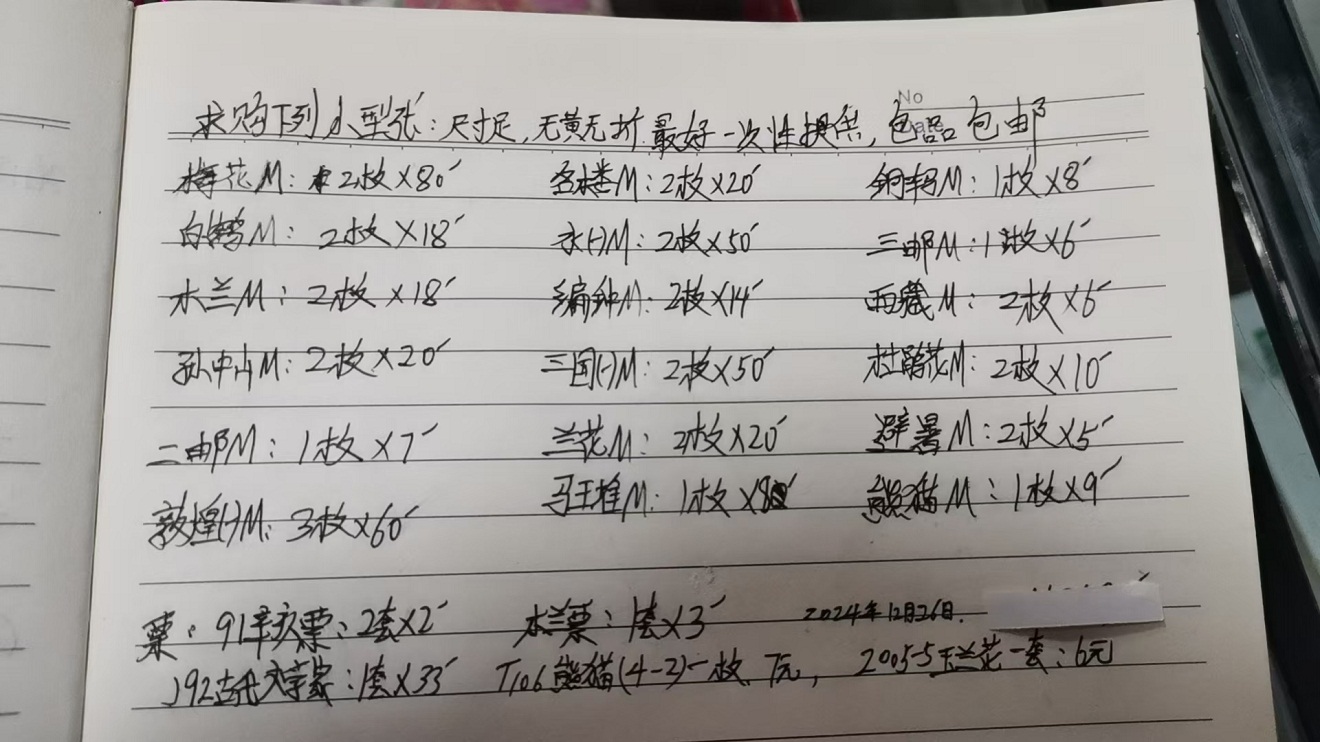 No
求购下列小型张：尺寸足，无黄无折最好一次性提供，包品包邮
梅花M：2枚×80 红楼M：2枚×20 铜车马M：1枚×8
白鹤M：2枚×18 水(一)M：2枚×50 三邮M：1枚×6
木兰M：2枚×18 编钟M：2枚×14 西藏M：2枚×6
孙中山M：2枚×20 三国(一)M：2枚×50 杜鹃花M：2枚×10
二邮M：1枚×7 兰花M：2枚×20 避暑M：2枚×5
敦煌(一)M：3枚×60 马王堆M：1枚×8 熊猫M：1枚×9
票：91辛亥票：2套×2 木兰票：1套×3 2024年12月26日.
J92古代文学家：1套×33 T106熊猫(4-2)一枚 7元， 2005-5玉兰花一套：6元